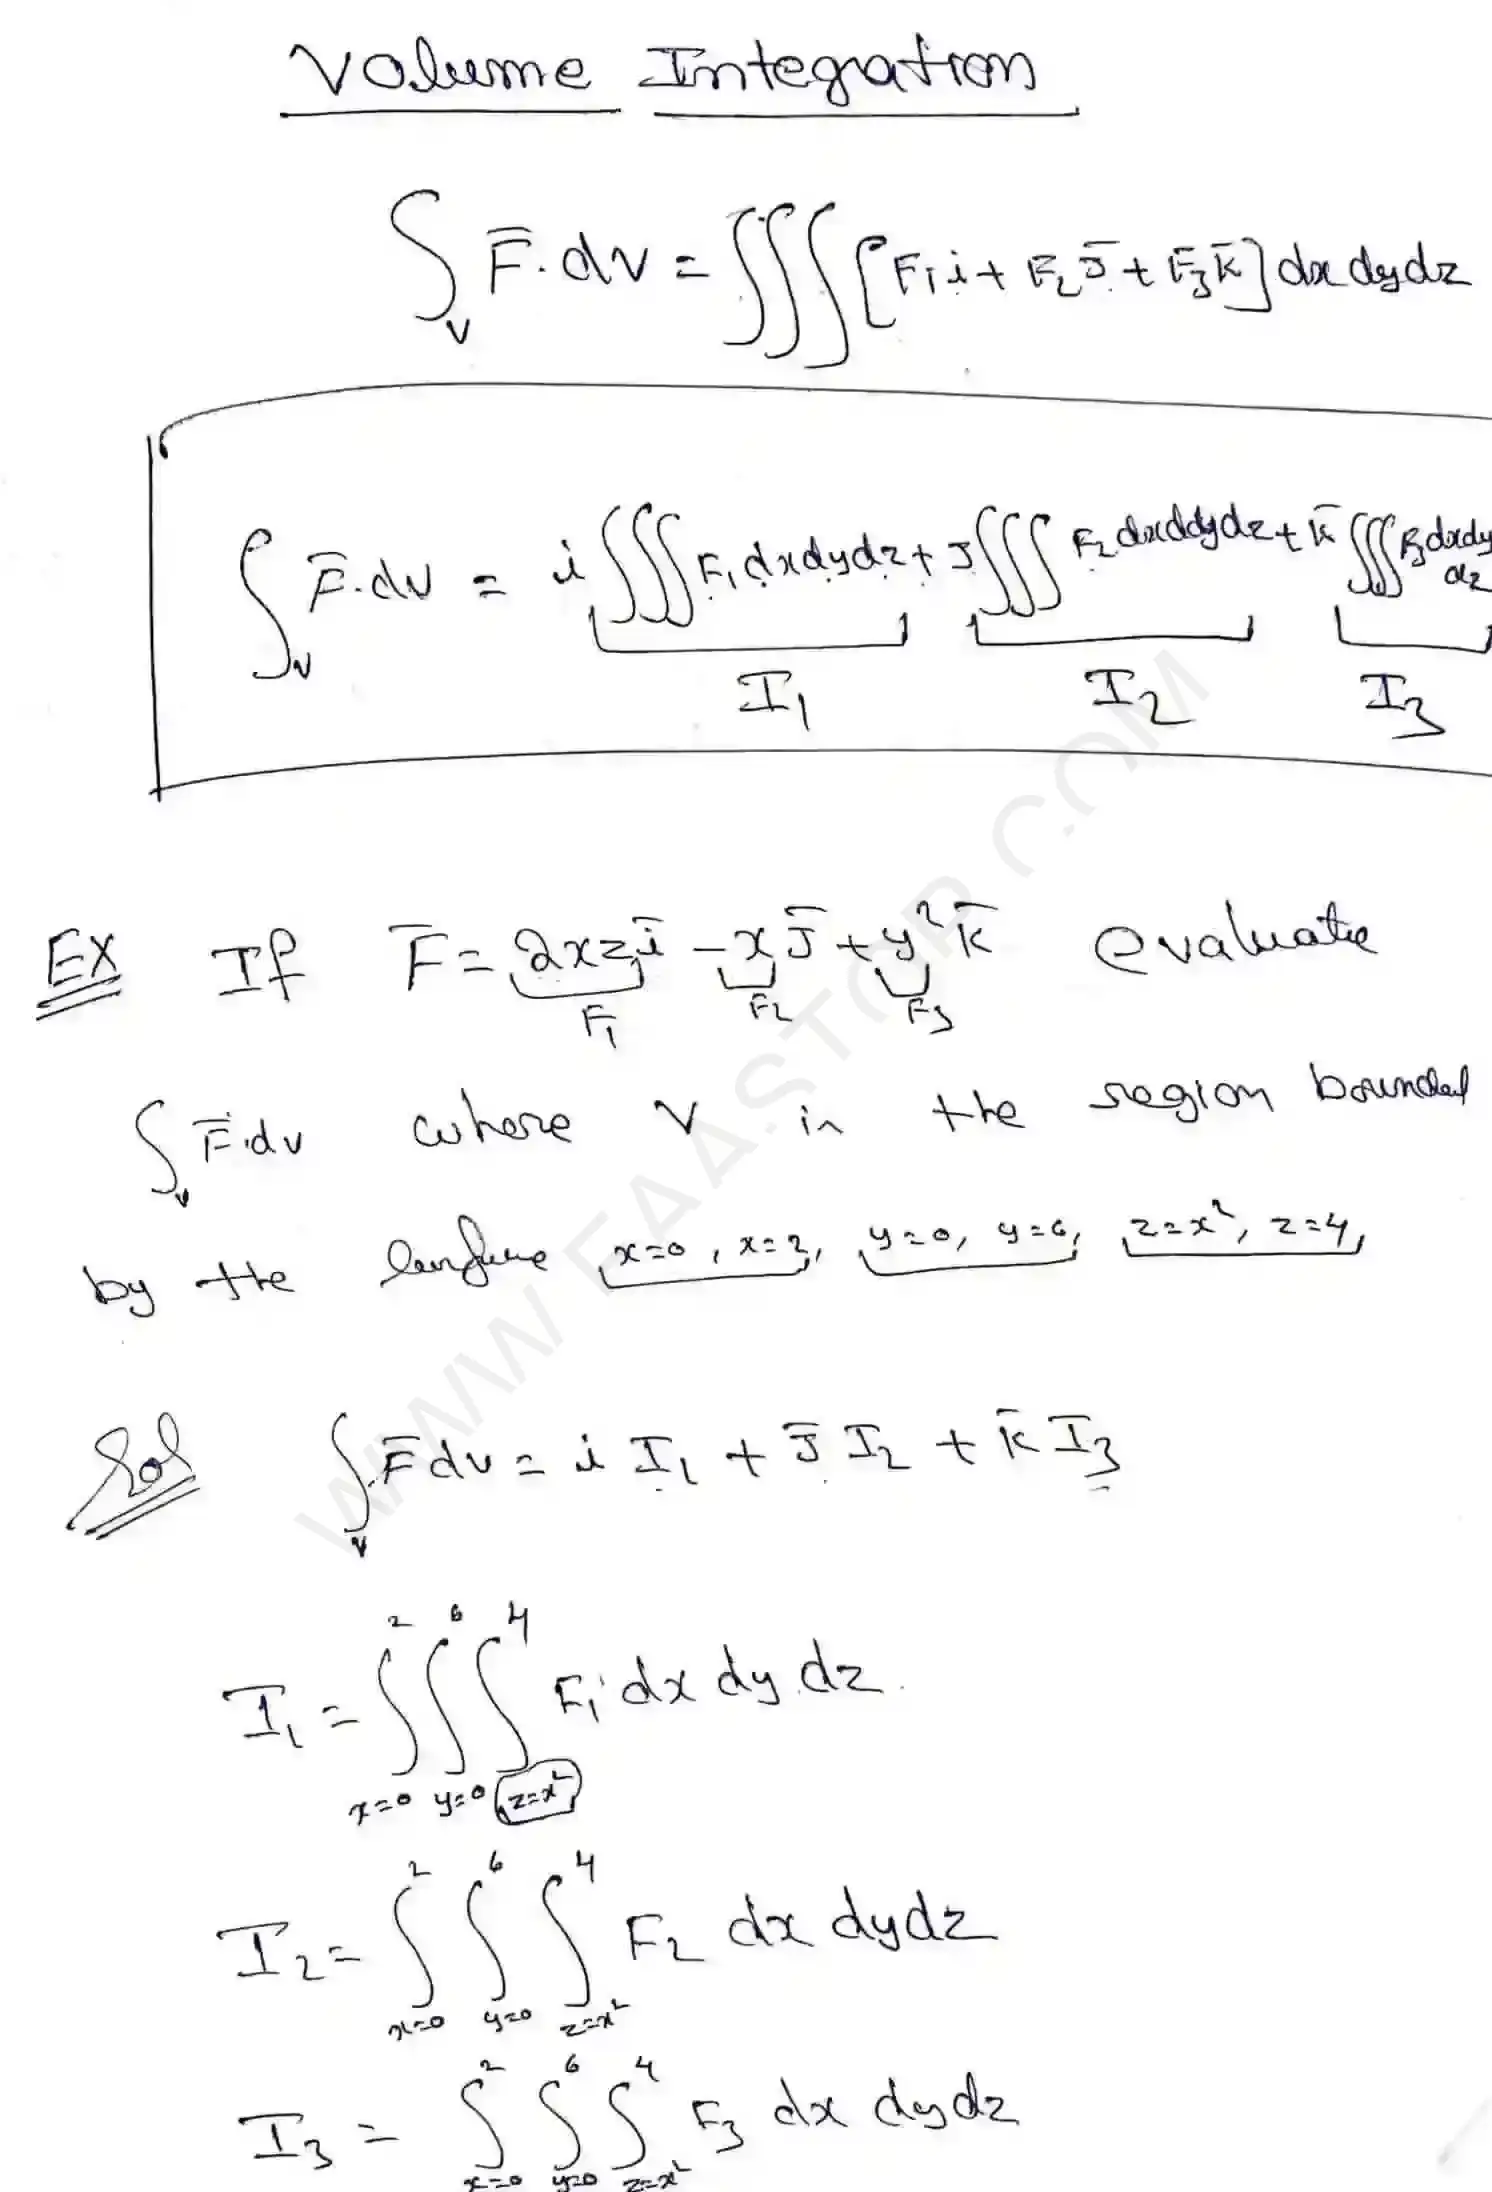 Volume Integration
∫_V F̄.dv = ∭ [F₁i + F₂J̄ + F₃K̄] dx dy dz
∫_V F̄.dv = i ∭ F₁ dxdydz + J ∭ F₂ dxddydz + K̄ ∭ F₃ dxdy dz
I₁ I₂ I₃
EX If F̄ = 2xz ī - x J̄ + y² K̄ evaluate
F₁ F₂ F₃
∫_V F̄.dv where V in the region bounded
by the x=0, x=2, y=0, y=6, z=x², z=4,
Sol ∫_V F̄ dv = i I₁ + J̄ I₂ + K̄ I₃
I₁ = ∫_{x=0}^{2} ∫_{y=0}^{6} ∫_{z=x²}^{4} F₁ dx dy dz.
I₂ = ∫_{x=0}^{2} ∫_{y=0}^{6} ∫_{z=x²}^{4} F₂ dx dydz
I₃ = ∫_{x=0}^{2} ∫_{y=0}^{6} ∫_{z=x²}^{4} F₃ dx dydz
WWW.FAASTOP.COM